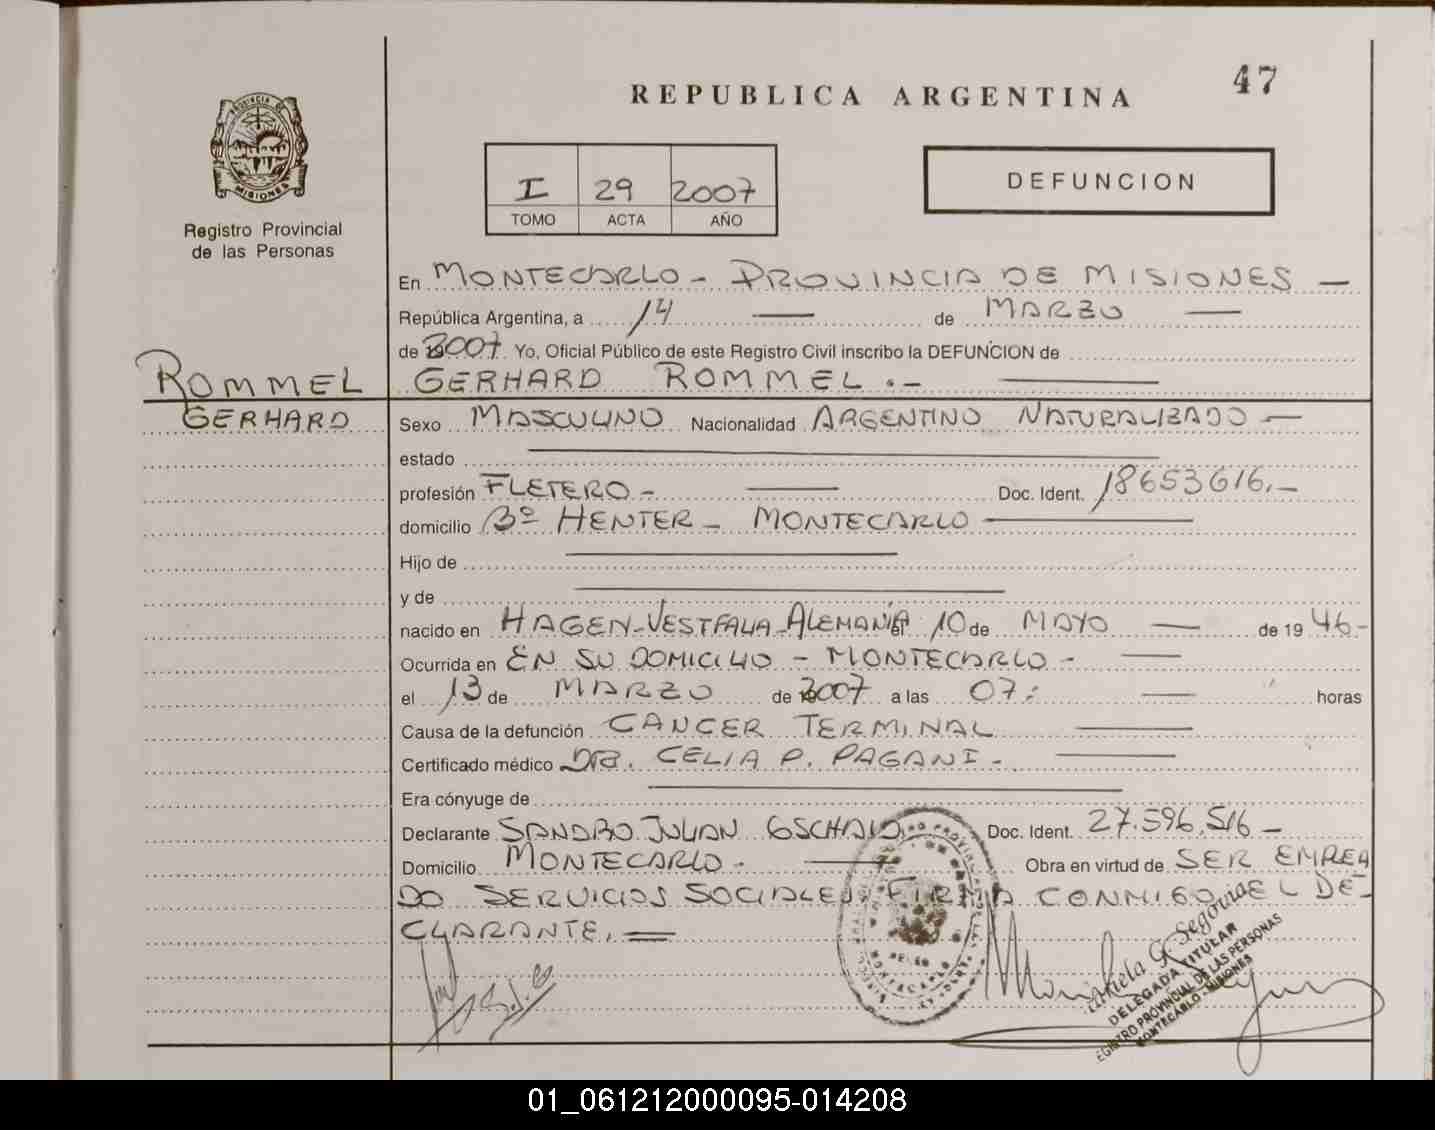 47
REPUBLICA ARGENTINA
PROVINCIA DE
MISIONES
Registro Provincial
de las Personas
I 29 2007
TOMO ACTA AÑO
DEFUNCION
En MONTECARLO - PROVINCIA DE MISIONES —
República Argentina, a 14 — de MARZO —
de 2007 Yo, Oficial Público de este Registro Civil inscribo la DEFUNCION de
ROMMEL
GERHARD ROMMEL .- —
GERHARD
Sexo MASCULINO Nacionalidad ARGENTINO NATURALIZADO —
estado —
profesión FLETERO - — Doc. Ident. 18653616.-
domicilio Bº HENTER - MONTECARLO —
Hijo de —
y de —
nacido en HAGEN-VESTFALIA-ALEMANIA el 10 de MAYO — de 19 46.-
Ocurrida en EN SU DOMICILIO - MONTECARLO - —
el 13 de MARZO de 2007 a las 07: — horas
Causa de la defunción CANCER TERMINAL —
Certificado médico DRA. CELIA P. PAGANI - —
Era cónyuge de —
Declarante SANDRO JULIAN Doc. Ident. 27.596.516 -
Domicilio MONTECARLO - — Obra en virtud de SER EMPLEA
DO SERVICIOS SOCIALES, FIRMA CONMIGO EL DE-
CLARANTE. =
G. Segovia
DELEGADA TITULAR
REGISTRO PROVINCIAL DE LAS PERSONAS
MONTECARLO - MISIONES
01_061212000095-014208